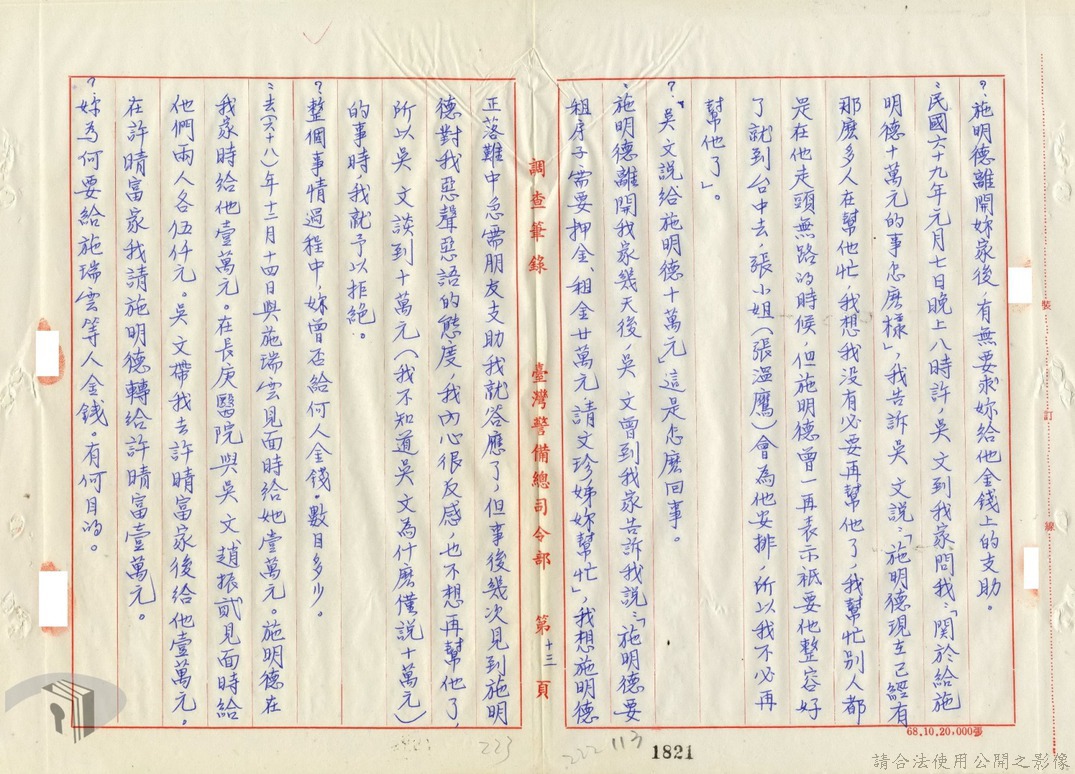 ？施明德離開妳家後，有無要求妳給他金錢上的支助。
：民國六十九年元月七日晚上八時許，吳 文到我家問我：「関於給施
明德十萬元的事怎麽樣」，我告訴吳 文說：「施明德現在已經有
那麽多人在幫他忙，我想我没有必要再幫他了，我幫忙別人都
是在他走頭無路的時候，但施明德曾一再表示祗要他整容好
了就到台中去，張小姐（張溫鷹）會為他安排，所以我不必再
幫他了」。
？「吳 文說給施明德十萬元」這是怎麽回事。
：施明德離開我家幾天後，吳 文曾到我家告訴我說：「施明德要
租房子需要押金、租金廿萬元，請文珍姊妳幫忙」，我想施明德
調查筆錄 臺灣警備總司令部 第十三頁
正落難中急需朋友支助，我就答應了，但事後幾次見到施明
德對我惡聲惡語的態度，我內心很反感，也不想再幫他了，
所以吳 文談到十萬元（我不知道吳 文為什麽僅說十萬元）
的事時，我就予以拒絕。
？整個事情過程中，妳曾否給何人金錢。數目多少。
：去（六十八）年十二月十四日與施瑞雲見面時給她壹萬元。施明德在
我家時給他壹萬元。在長庚醫院與吳 文、趙振貳見面時給
他們兩人各伍仟元。吳 文帶我去許晴富家後給他壹萬元。
在許晴富家我請施明德轉給許晴富壹萬元。
？妳為何要給施瑞雲等人金錢。有何目的。
裝
訂
線
68.10.20,000張
223
222
113
1821
請合法使用公開之影像